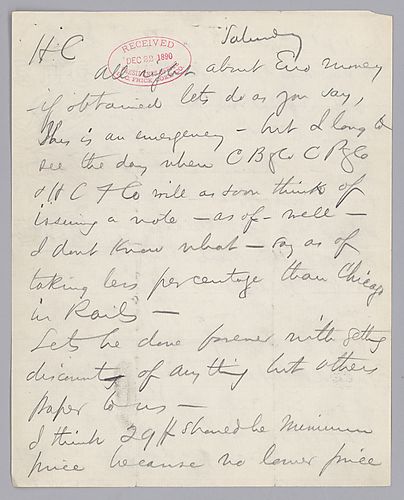 Saturday
H C
RECEIVED
DEC 22 1890
All right about Euro money
if obtained lets do as you say,
this is an emergency – but I long to
see the day when C B & Co C P & Co
& H C F Co will as soon think of
issuing a note – as of – well –
I dont know what – say as of
taking less percentage than Chicago
in Rails –
Lets be done forever with getting
discounts of anything but others
paper to us –
I think 29 should be minimum
price because no lower price